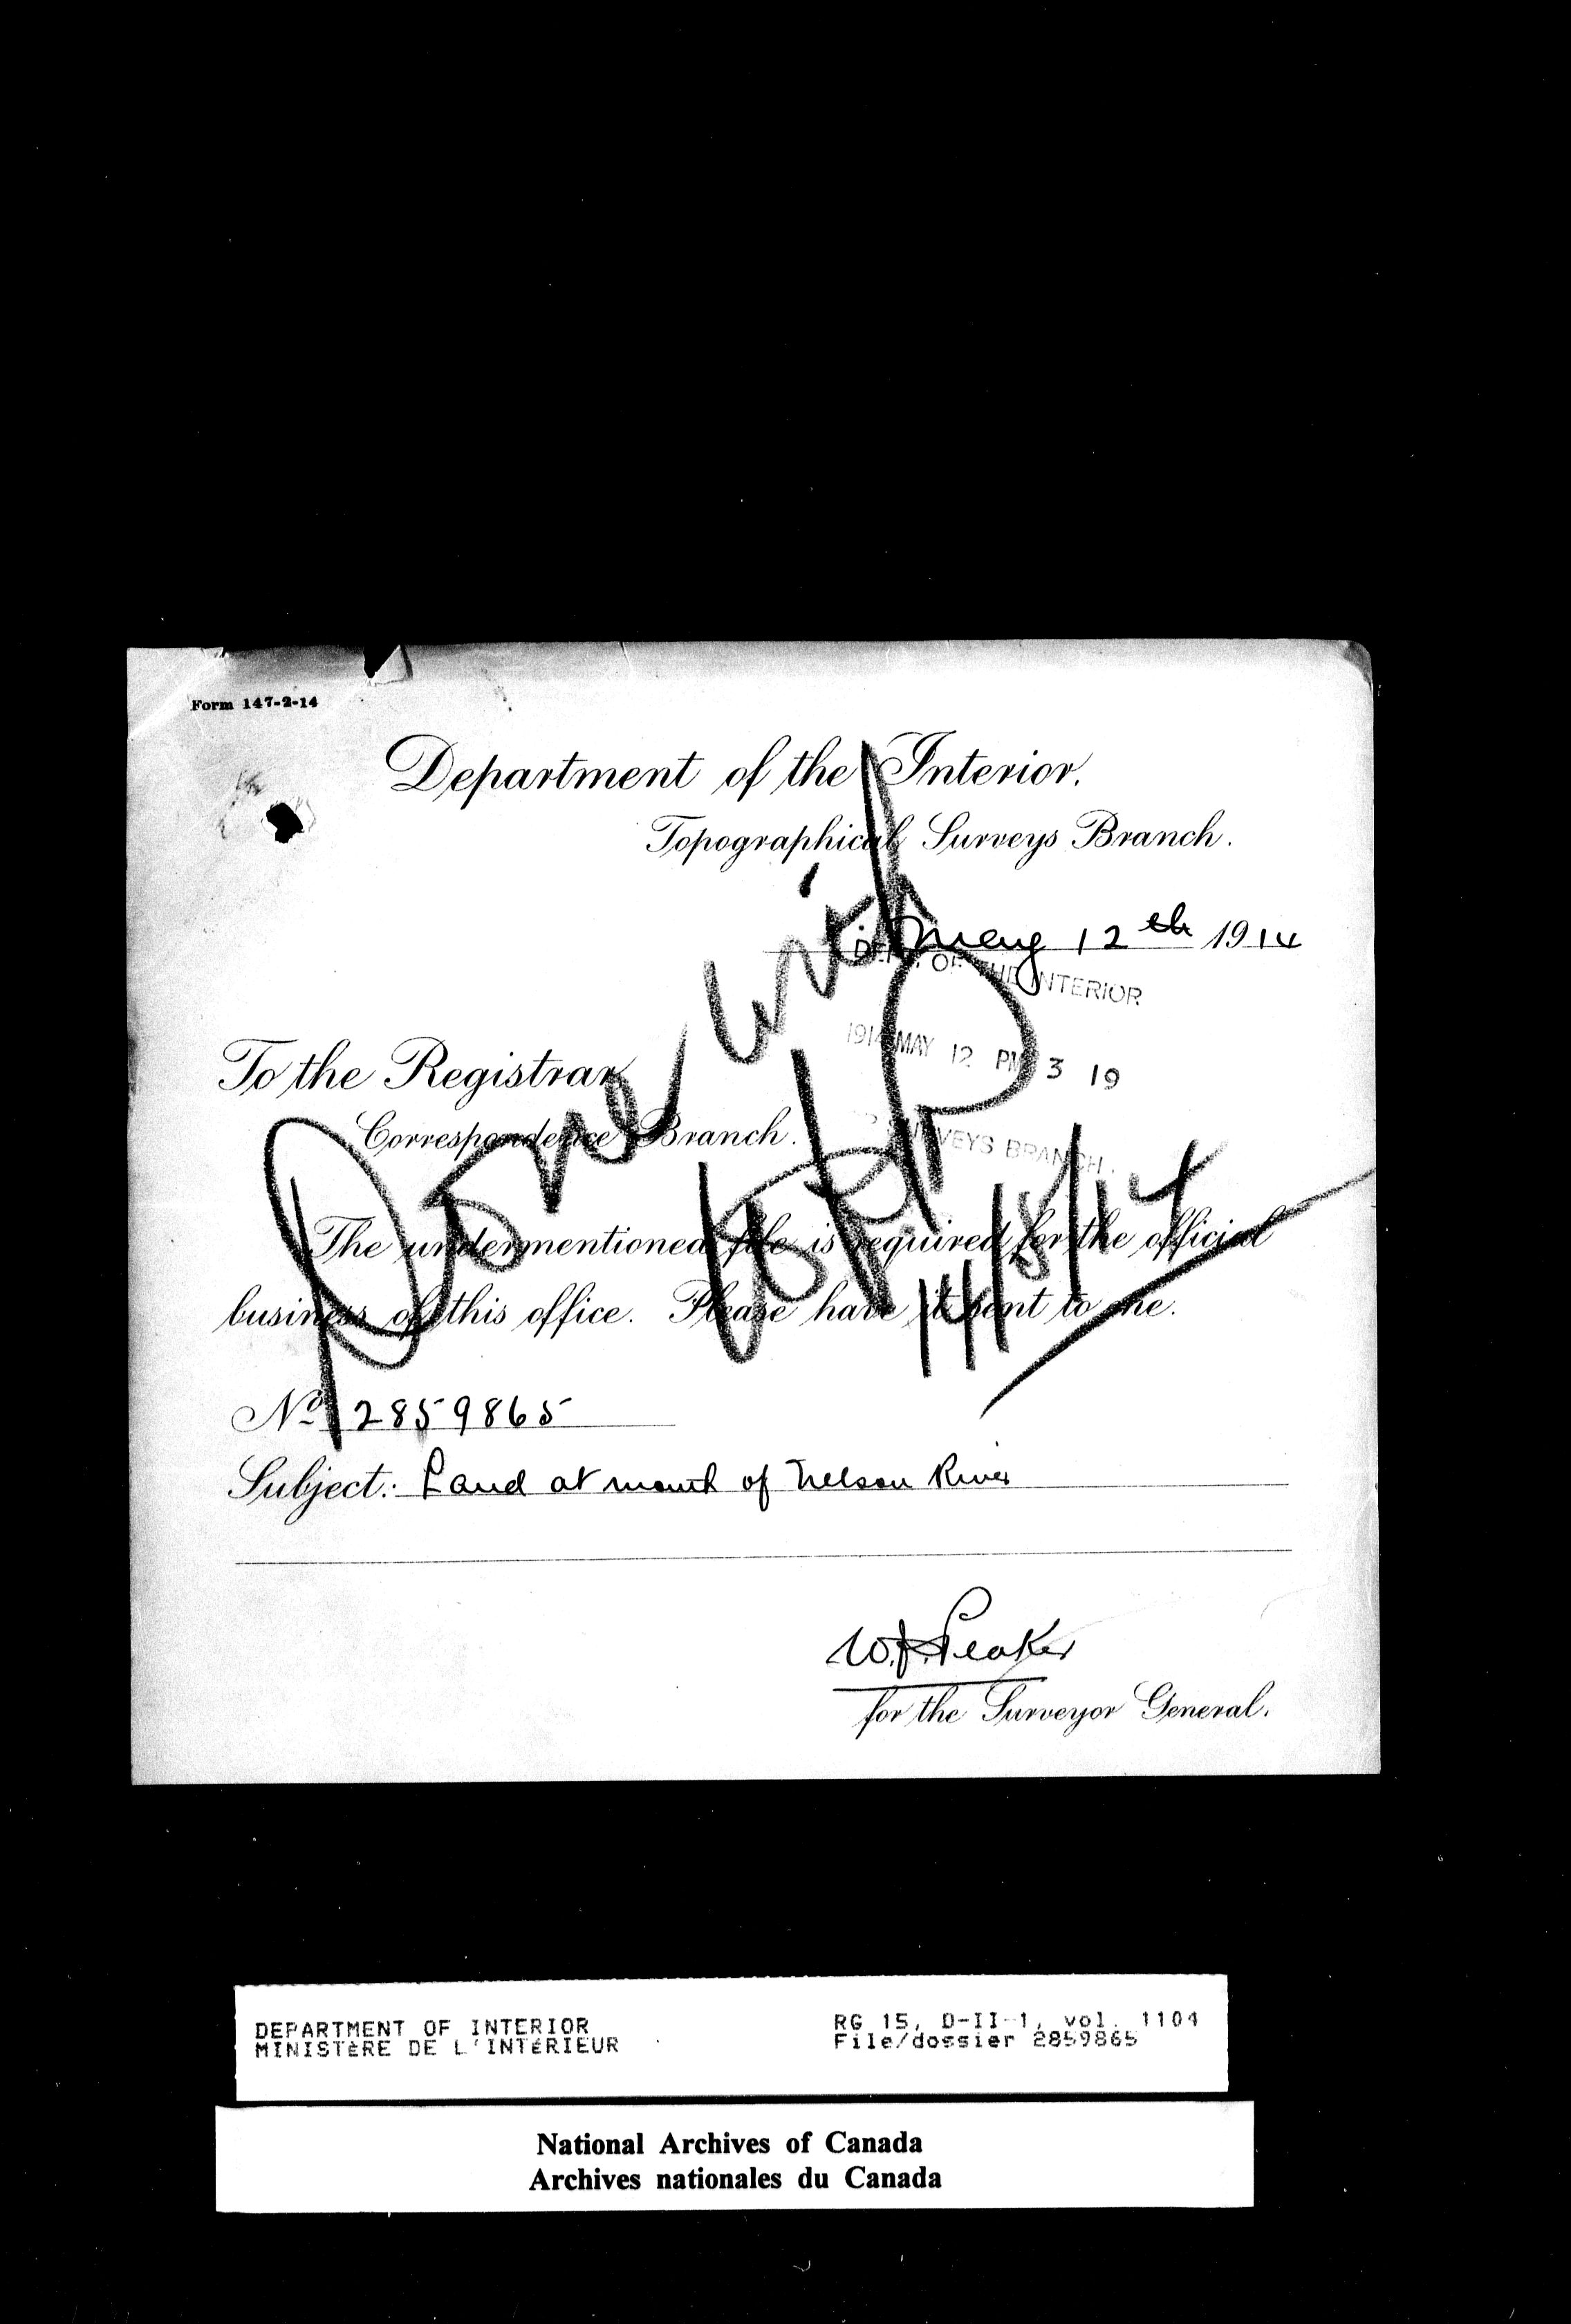 Form 147-2-14
Department of the Interior.
Topographical Surveys Branch.
May 12th 1914
DEPT. OF THE INTERIOR
1914 MAY 12 PM 3 19
SURVEYS BRANCH.
To the Registrar
Correspondence Branch.
Done with
14/5/14
The undermentioned file is required for the official
business of this office. Please have it sent to me.
No. 2859865
Subject: Land at mouth of Nelson River
W.J. Peaker
for the Surveyor General.
DEPARTMENT OF INTERIOR
MINISTÈRE DE L'INTÉRIEUR
RG 15, D-II-1, vol. 1104
File/dossier 2859865
National Archives of Canada
Archives nationales du Canada